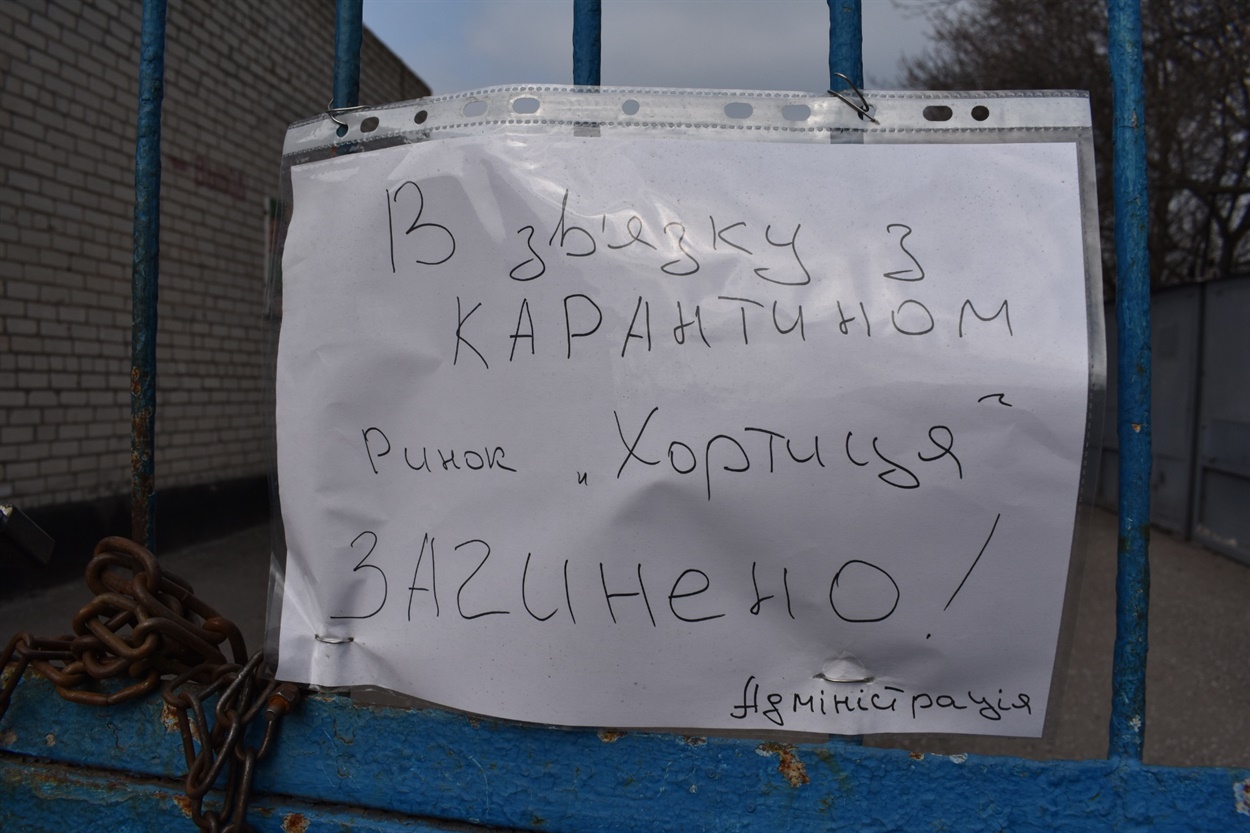 В зв'язку з
КАРАНТИНОМ
ринок „Хортиця"
ЗАЧИНЕНО!
Адміністрація